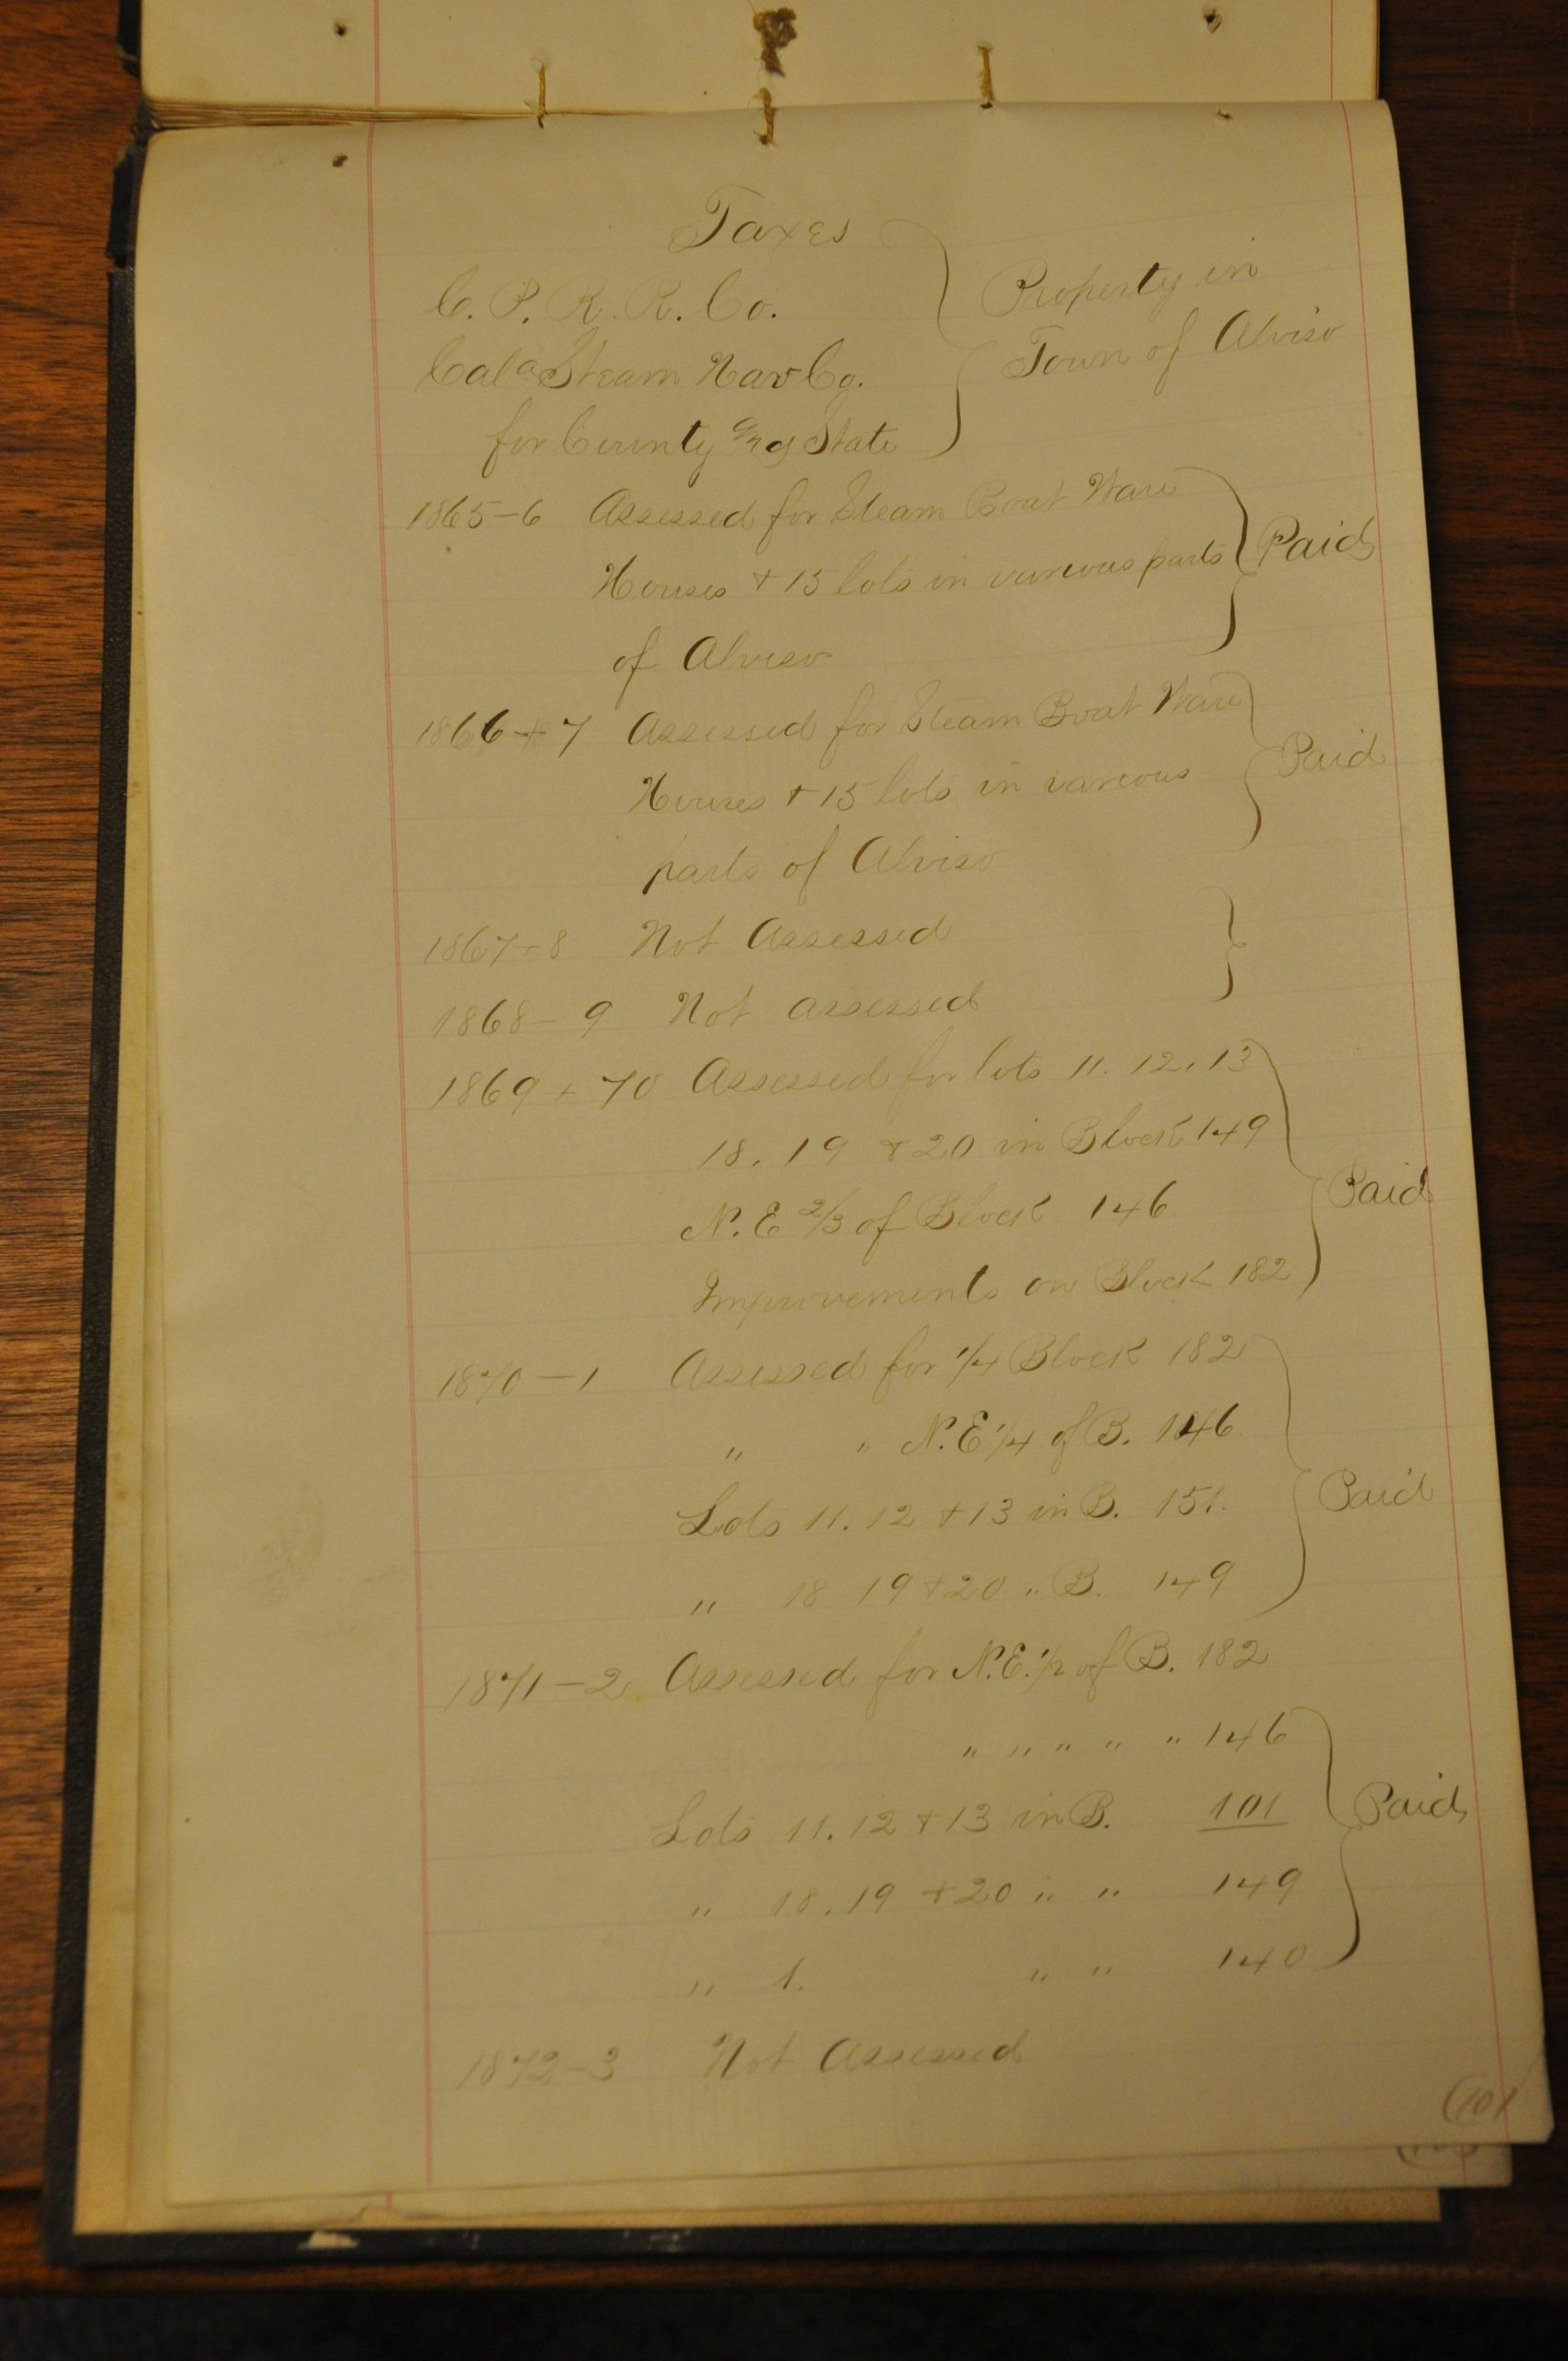 Taxes
C. P. R. R. Co.
Property in
Cala Steam Nav Co.
Town of Alviso
for County and State
1865-6 Assessed for Steam Boat Ware
Houses + 15 lots in various parts
Paid
of Alviso
1866+7 Assessed for Steam Boat Ware
Houses + 15 lots in various
Paid
parts of Alviso
1867+8 Not Assessed
1868-9 Not assessed
1869+70 Assessed for lots 11. 12. 13
18. 19 + 20 in Block 149
N.E 2/3 of Block 146
Paid
Improvements on Block 182
1870-1 Assessed for 1/4 Block 182
" " N.E 1/4 of B. 146
Lots 11. 12 + 13 in B. 151.
Paid
" 18 19 + 20 " B. 149
1871-2 Assessed for N.E. 1/2 of B. 182
" " " " " 146
Lots 11. 12 + 13 in B. 101
Paid
" 18. 19 + 20 " " 149
" 1. " " 140
1872-3 Not Assessed
(101